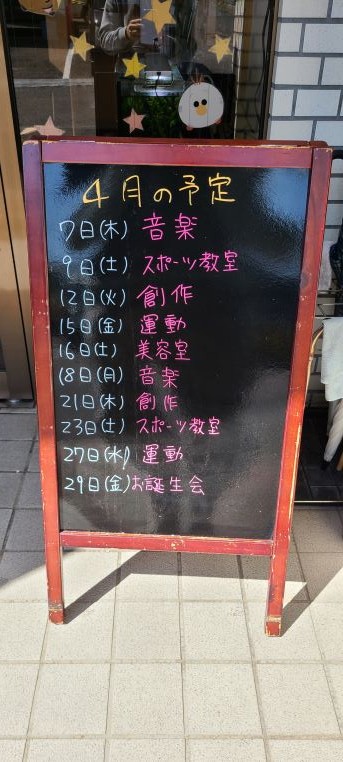 4月の予定
7日(木) 音楽
9日(土) スポーツ教室
12日(火) 創作
15日(金) 運動
16日(土) 美容室
18日(月) 音楽
21日(木) 創作
23日(土) スポーツ教室
27日(水) 運動
29日(金)お誕生会